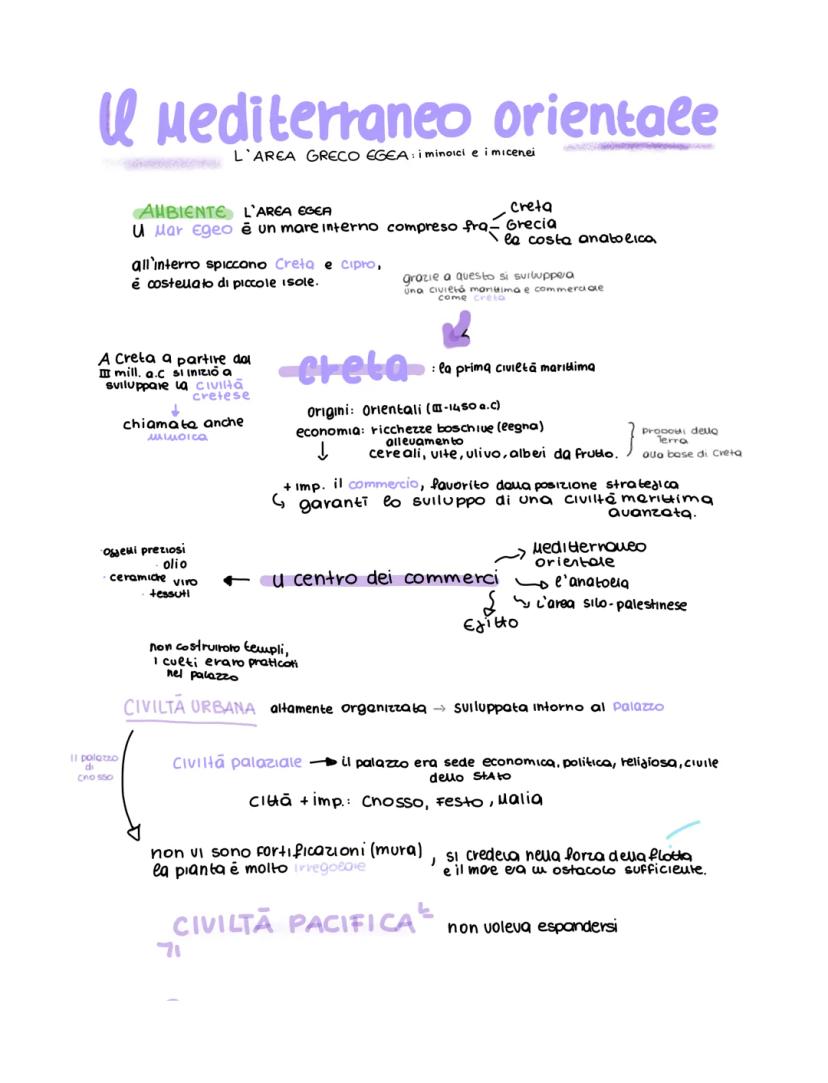 Il Mediterraneo orientale
L'AREA GRECO EGEA: i minoici e i micenei
AMBIENTE L'AREA EGEA
Il Mar Egeo è un mare interno compreso fra
Creta
Grecia
la costa anatolica
all'interro spiccono Creta e Cipro,
è costellato di piccole isole.
grazie a questo si svilupperà
una civiltà marittima e commerciale
come Creta
A Creta a partire dal
III mill. a.C si iniziò a
sviluppare la civiltà
cretese
↓
chiamata anche
minoica
Creta : la prima civiltà marittima
origini: orientali (III-1450 a.C)
economia: ricchezze boschive (legna)
allevamento
cereali, vite, ulivo, alberi da frutto.
prodotti della
Terra
alla base di Creta
+ imp. il commercio, favorito dalla posizione strategica
garantì lo sviluppo di una civiltà marittima
avanzata.
·oggetti preziosi
· olio
· ceramiche vino
· tessuti
← Il centro dei commerci
→ Mediterraneo
orientale
→ l'anatolia
→ L'area siro-palestinese
Egitto
non costruirono templi,
i culti erano praticati
nel palazzo
CIVILTÀ URBANA altamente organizzata → sviluppata intorno al Palazzo
Il palazzo
di
Cnosso
Civiltà palaziale → il palazzo era sede economica, politica, religiosa, civile
dello Stato
Città + imp.: Cnosso, Festo, Malia
non vi sono fortificazioni (mura)
la pianta è molto irregolare
, si credeva nella forza della flotta
e il mare era un ostacolo sufficiente.
CIVILTÀ PACIFICA non voleva espandersi